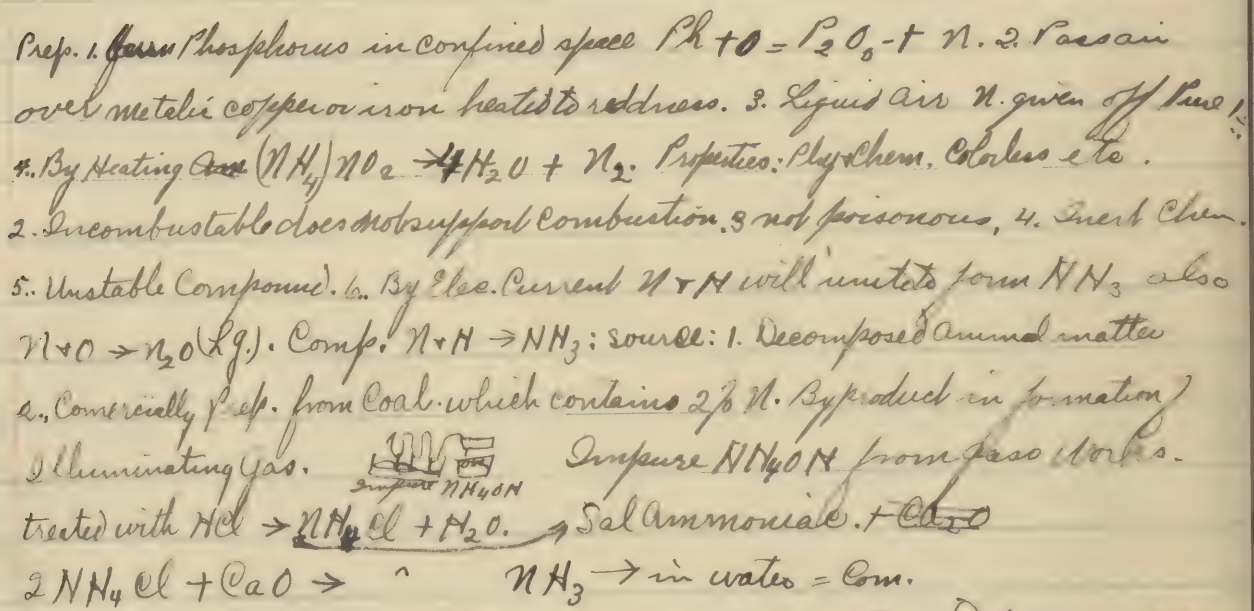 Prep. 1. Burn Phosphorus in confined space Ph + O = P2O5 + N. 2. Pass air
over metalic copper or iron heated to reddness. 3. Liquid air N. given off Pure
4. By Heating (NH4)NO2 → 4H2O + N2. Properties: Phy & Chem. Colorless etc.
2. Incombustable does not support combustion. 3 not poisonous, 4. Inert Chem.
5. Unstable Compound. 6. By Elec. Current N + H will unite to form NH3 also
N + O → N2O (Lg.). Comp. N + H → NH3: Source: 1. Decomposed animal matter
2., Comercially Prep. from Coal. which contains 2% N. Byproduct in formation
Illuminating gas. Impure NH4OH Impure NH4OH from gaso Works.
treated with HCl → NH4Cl + H2O. → Sal Ammoniac. + CaO
2NH4Cl + CaO → NH3 → in water = Com.